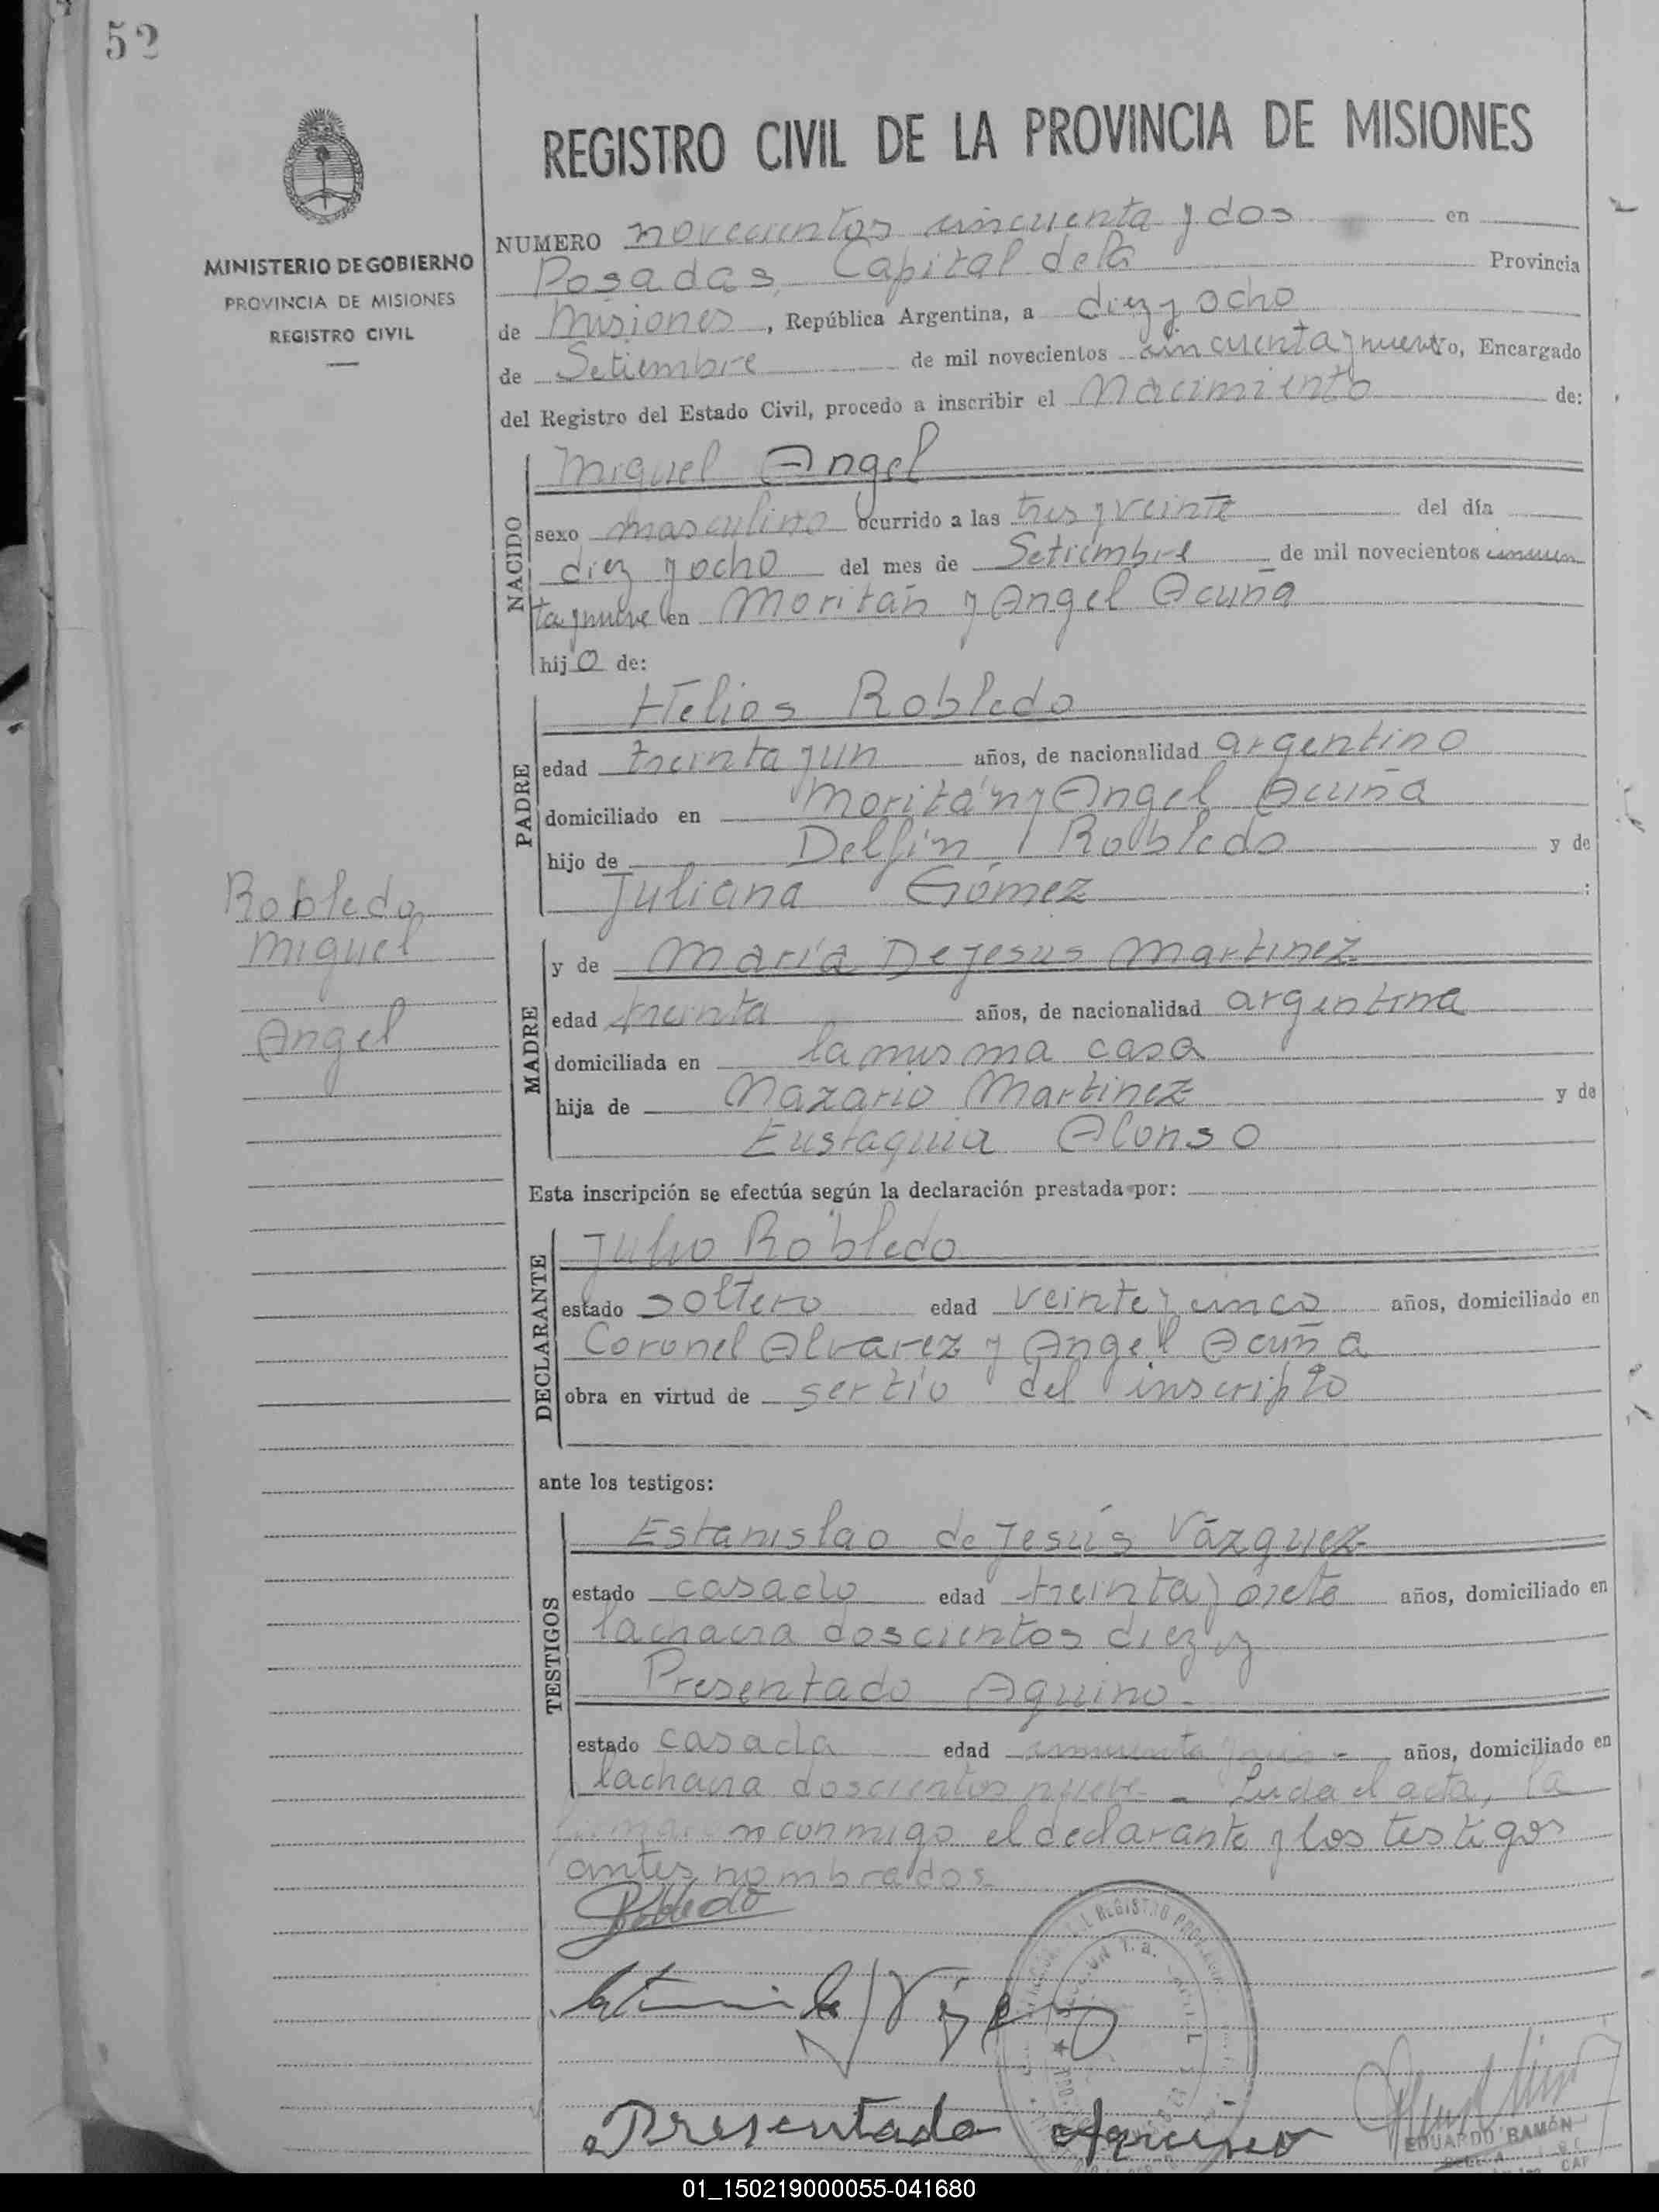 52
REGISTRO CIVIL DE LA PROVINCIA DE MISIONES
MINISTERIO DE GOBIERNO
PROVINCIA DE MISIONES
REGISTRO CIVIL
NUMERO novecientos cincuenta y dos en
Posadas, Capital de la Provincia
de Misiones, República Argentina, a diez y ocho
de Setiembre de mil novecientos cincuenta y nueve, Encargado
del Registro del Estado Civil, procedo a inscribir el Nacimiento de:
NACIDO
Miguel Angel
sexo masculino ocurrido a las tres y veinte del día
diez y ocho del mes de Setiembre de mil novecientos cincuen
ta y nueve en Moritán y Angel Acuña
hijo de:
PADRE
Helios Robledo
edad treinta y un años, de nacionalidad argentino
domiciliado en Moritán y Angel Acuña
hijo de Delfín Robledo y de
Juliana Gómez :
Robledo
Miguel
Angel
MADRE
y de María De Jesus Martinez
edad treinta años, de nacionalidad argentina
domiciliada en la misma casa
hija de Nazario Martinez y de
Eustaquia Alonso
Esta inscripción se efectúa según la declaración prestada por:
DECLARANTE
Julio Robledo
estado soltero edad veinte y cinco años, domiciliado en
Coronel Alvarez y Angel Acuña
obra en virtud de ser tío del inscripto
ante los testigos:
TESTIGOS
Estanislao de Jesús Vázquez
estado casado edad treinta y años, domiciliado en
la chacra doscientos diez y
Presentado Aquino.
estado casada edad años, domiciliado en
la chacra doscientos nueve. Leida el acta, la
firmaron conmigo el declarante y los testigos
antes nombrados
Robledo
Presentado Aquino
EDUARDO RAMÓN
01_150219000055-041680